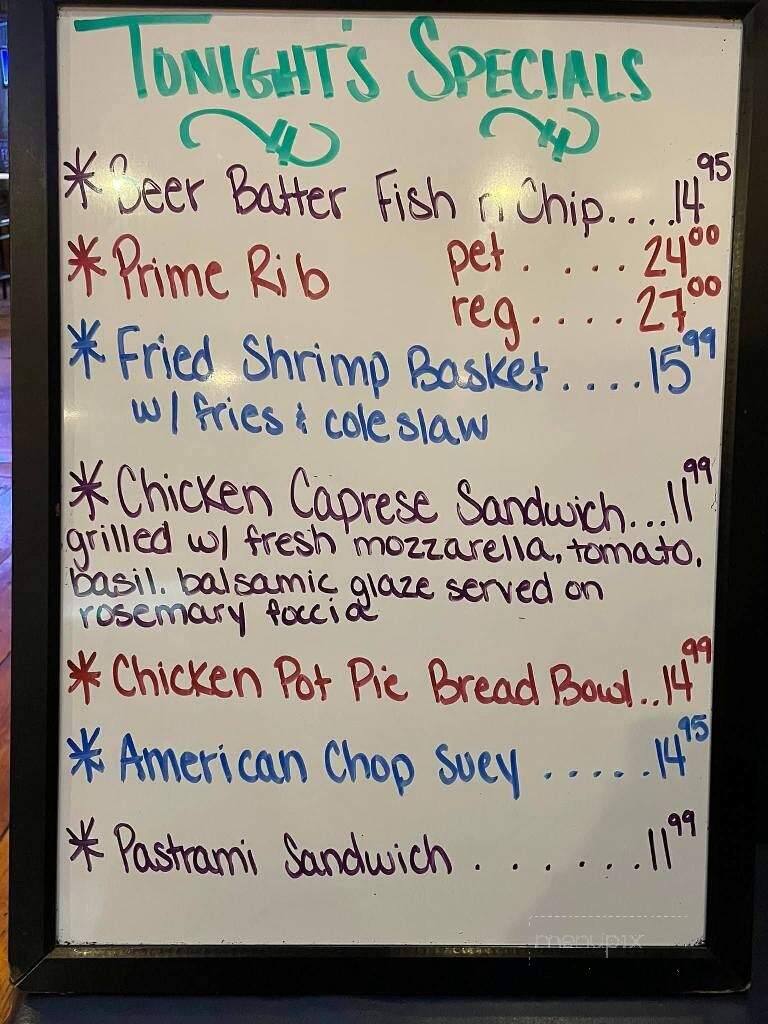 TONIGHT'S SPECIALS
* Beer Batter Fish n Chip....14.95
* Prime Rib pet.....24.00
reg....27.00
* Fried Shrimp Basket....15.99
w/ fries & coleslaw
* Chicken Caprese Sandwich...11.99
grilled w/ fresh mozzarella, tomato,
basil. balsamic glaze served on
rosemary foccia
* Chicken Pot Pie Bread Bowl..14.99
* American Chop Suey.....14.95
* Pastrami Sandwich.......11.99
menupix